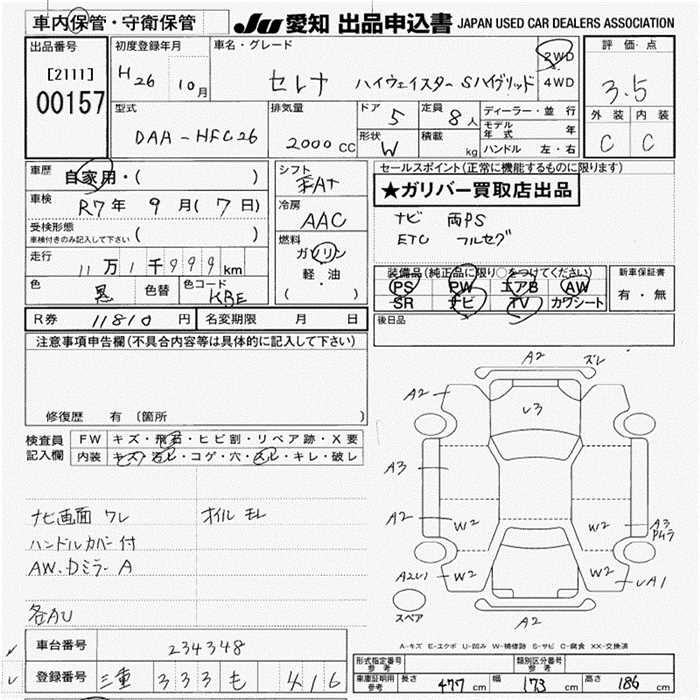 車内保管・守衛保管
JU 愛知 出品申込書 JAPAN USED CAR DEALERS ASSOCIATION
出品番号 初度登録年月 車名・グレード 評価点
[2111] H26 10月 セレナ ハイウェイスター Sハイブリッド 2WD 4WD 3.5
00157
型式 排気量 ドア 定員 ディーラー・並行 外装 内装
DAA-HFC26 2000 CC 5 8人 モデル年式 年 C C
形状 W 積載 kg ハンドル 左・右
車歴 自家用・( ) シフト FAT セールスポイント(正常に機能するものに限ります)
★ガリバー買取店出品
車検 R7年 9月(7日) 冷房 AAC ナビ 両PS
受検形態 車検付きのみ記入して下さい ( ) ETC フルセグ
燃料 ガソリン 軽・油 ( )
走行 11万1千999km 装備品(純正品に限り○をつけてください) 新車保証書
色 黒 色替 色コード KBE PS PW エアB AW 有・無
SR ナビ TV カワシート
R券 11810円 名変期限 月 日 後日品
注意事項申告欄(不具合内容等は具体的に記入して下さい)
修復歴 有〔箇所 〕
検査員記入欄 FW キズ・飛石・ヒビ割・リペア跡・X要
内装 キズ・汚レ・コゲ・穴・スレ・キレ・破レ
ナビ画面 ワレ オイル モレ
ハンドルカバー付
AW.Dミラー A
各AU
A2 ズレ
A2 U3
A3
A2 W2 W2 A3
A2U1 W2 W2 UA1
スペア A2
A-キズ E-エクボ U-凹み W-補修跡 S-サビ C-腐食 XX-交換済
車台番号 234348
登録番号 三重 333 も 416
形式指定番号 参考 類別区分番号 参考
車庫証明用 参考 長さ 477 cm 幅 173 cm 高さ 186 cm